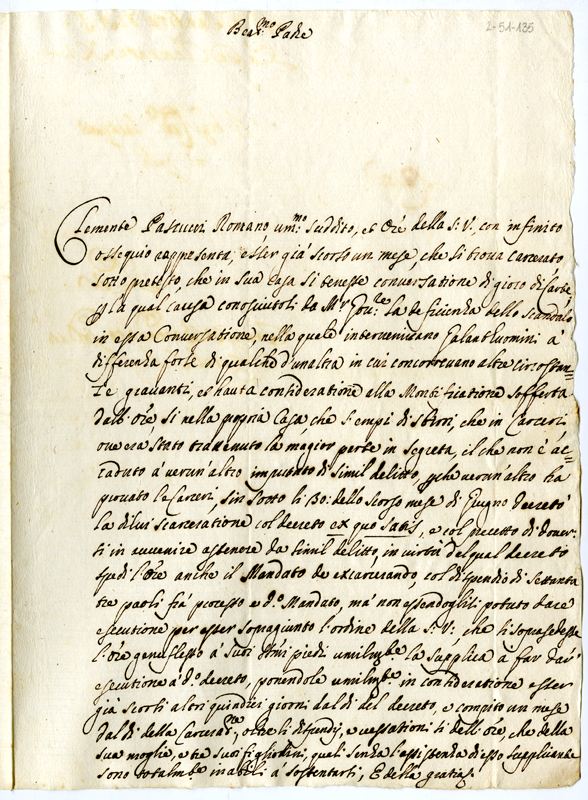 Beat.mo Padre
2-51-135
Clemente Pascucci Romano um.mo suddito, et Ore della S. V. con infinito
ossequio rappresenta, esser già scorso un mese, che si trova carcerato
sotto pretesto, che in sua Casa si tenesse conversatione di gioco di Carte
p la qual causa conosciutosi da Mr. Gov.re la deficienza dello scandalo
in essa Conversatione, nella quale intervenivano Galanthuomini a
differenza forse di qualche d'un altra in cui concorrevano altre circostan=
ze gravanti, et hauta consideratione alla Mortificatione sofferta
dall'Ore sì nella propria Casa, che s'empì di sbirri, che in Carceri
ove era stato trattenuto la magior parte in segreta, il che non è ac=
caduto à verun'altro imputato di simil delitto, p che verun'altro ha
provato le Carceri, sin sotto li 30: dello scorso mese di Giugno decretò
la di lui scarceratione col decreto ex quo satis, e col precetto di dover=
si in avvenire astenere da simil delitto, in virtù del qual decreto
spedì l'Ore anche il Mandato de excarcerando, col dispendio di settanta
tre paoli frà processo e d.o Mandato, mà non essendoglisi potuto dare
esecutione per esser sopragiunto l'ordine della S. V., che si soprasedesse
l'Ore genuflesso à suoi S.mi piedi umilm.te la supplica a far dar
esecutione à d.o decreto, ponendole umilm.te in consideratione esser
già scorsi altri quindici giorni dal dì del decreto, e compito un mese
dal dì della Carceraz.ne, oltre li dispendij, e vessationi sì dell'Ore, che della
sua moglie, e tre suoi figliolini, quali senza l'assistenza di esso supplicante
sono totalm.te inabili a sostentarsi, E della gratia.